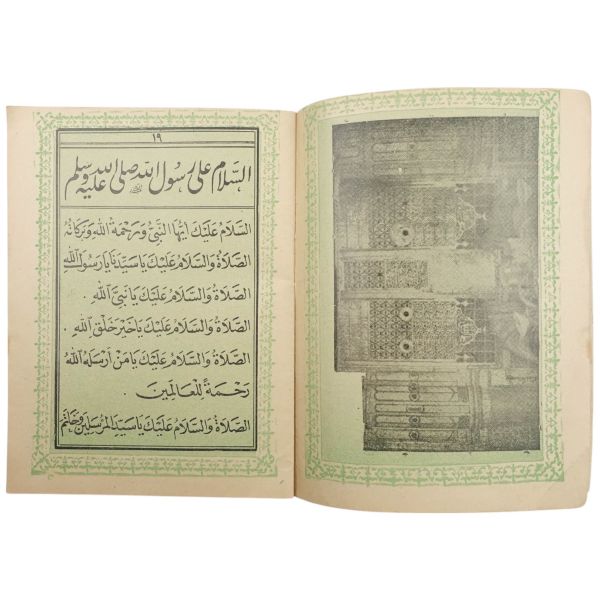 ١٩
السَّلَامُ عَلٰى رَسُولِ اللهِ صَلَّى اللهُ عَلَيْهِ وَسَلَّمْ
السَّلَامُ عَلَيْكَ اَيُّهَا النَّبِىُّ وَرَحْمَةُ اللهِ وَبَرَكَاتُهُ
الصَّلَاةُ وَالسَّلَامُ عَلَيْكَ يَا سَيِّدَنَا يَا رَسُولَ اللهِ
الصَّلَاةُ وَالسَّلَامُ عَلَيْكَ يَا نَبِىَّ اللهِ .
الصَّلَاةُ وَالسَّلَامُ عَلَيْكَ يَا خَيْرَ خَلْقِ اللهِ .
الصَّلَاةُ وَالسَّلَامُ عَلَيْكَ يَا مَنْ اَرْسَلَهُ اللهُ
رَحْمَةً لِلْعَالَمِينَ .
الصَّلَاةُ وَالسَّلَامُ عَلَيْكَ يَا سَيِّدَ الْمُرْسَلِينَ وَخَاتَمَ